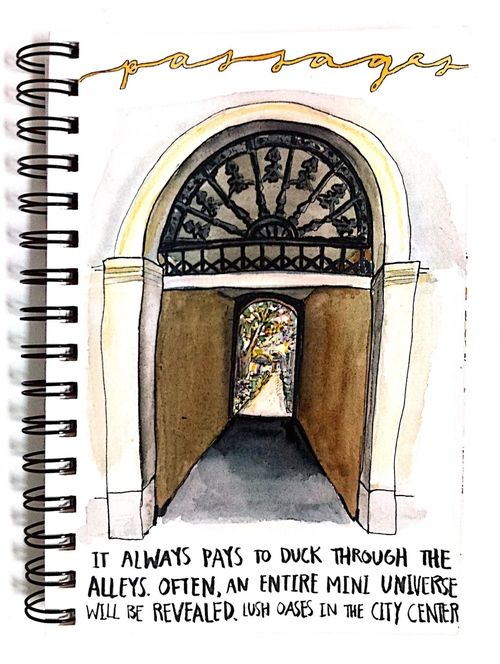 passages
IT ALWAYS PAYS TO DUCK THROUGH THE
ALLEYS. OFTEN, AN ENTIRE MINI UNIVERSE
WILL BE REVEALED. LUSH OASES IN THE CITY CENTER